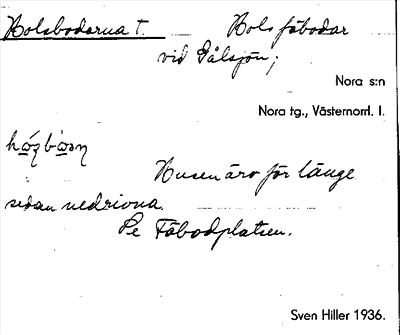 Holsbodarna t. Hols fäbodar
vid Gålsjön;
Nora s:n
Nora tg., Västernorrl. l.
Husen äro för länge
sedan nedrivna.
Se Fäbodplatsen.
Sven Hiller 1936.